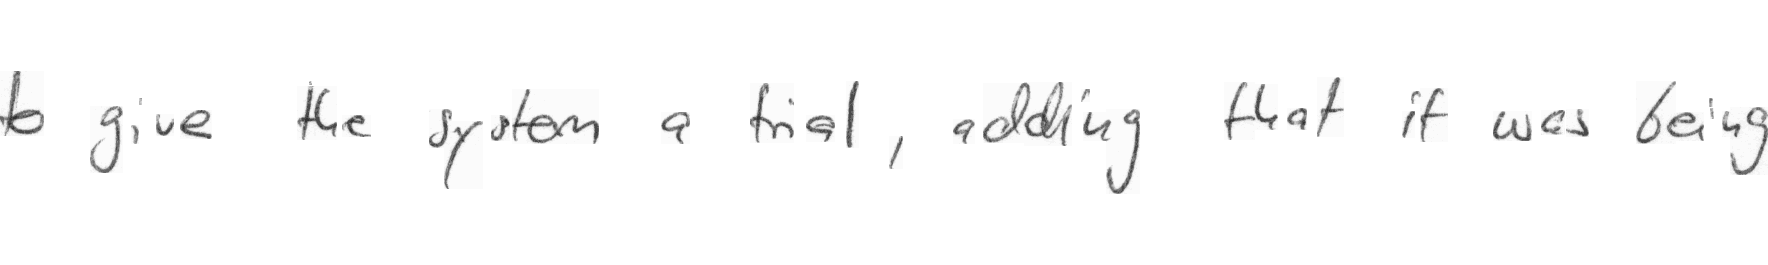 to give the system a trial, adding that it was being